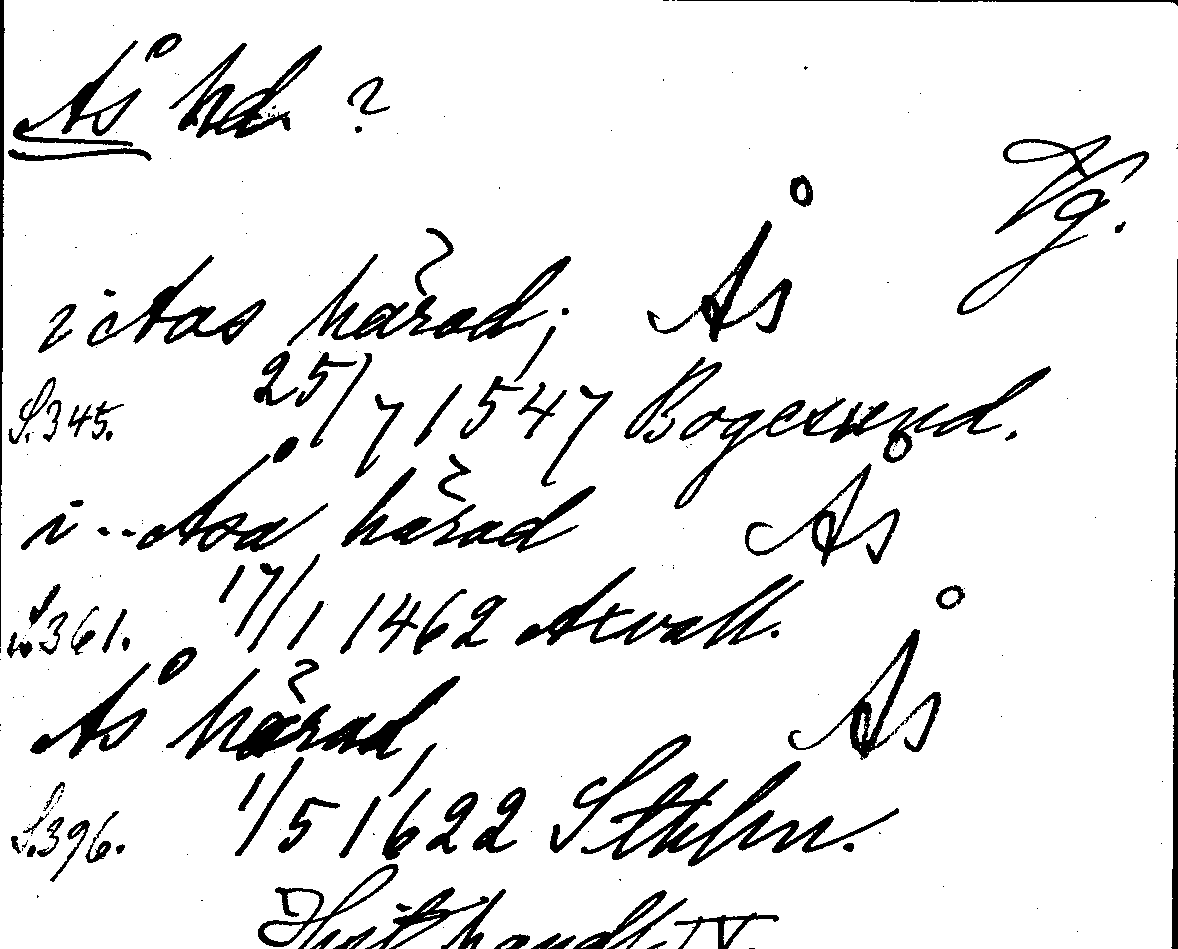 Ås hd. ?
Vg.
i Aas härad; Ås
S. 345. 25/7 1547 Bogesund.
i -- Åsa härad Ås
S. 361. 17/1 1462 Axvall.
Ås härad, Ås
S. 396. 1/5 1622 Sthlm.
Hist. handl. IV.